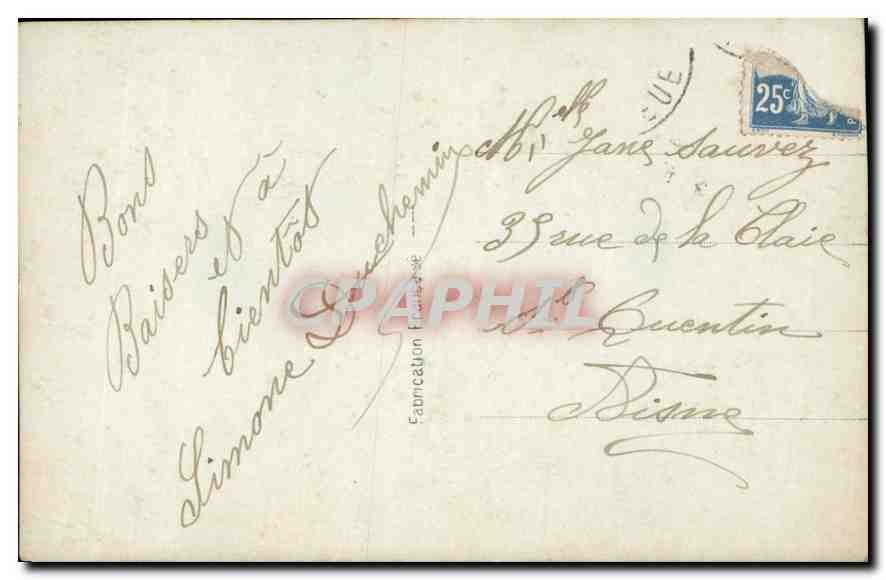 Bons
Baisers
et à
bientôt
Simone Duchemin
Fabrication Française
CPAPHIL
GUE
25c
Mlle Jane Sauvez
35 rue de la Claie
St Quentin
Aisne